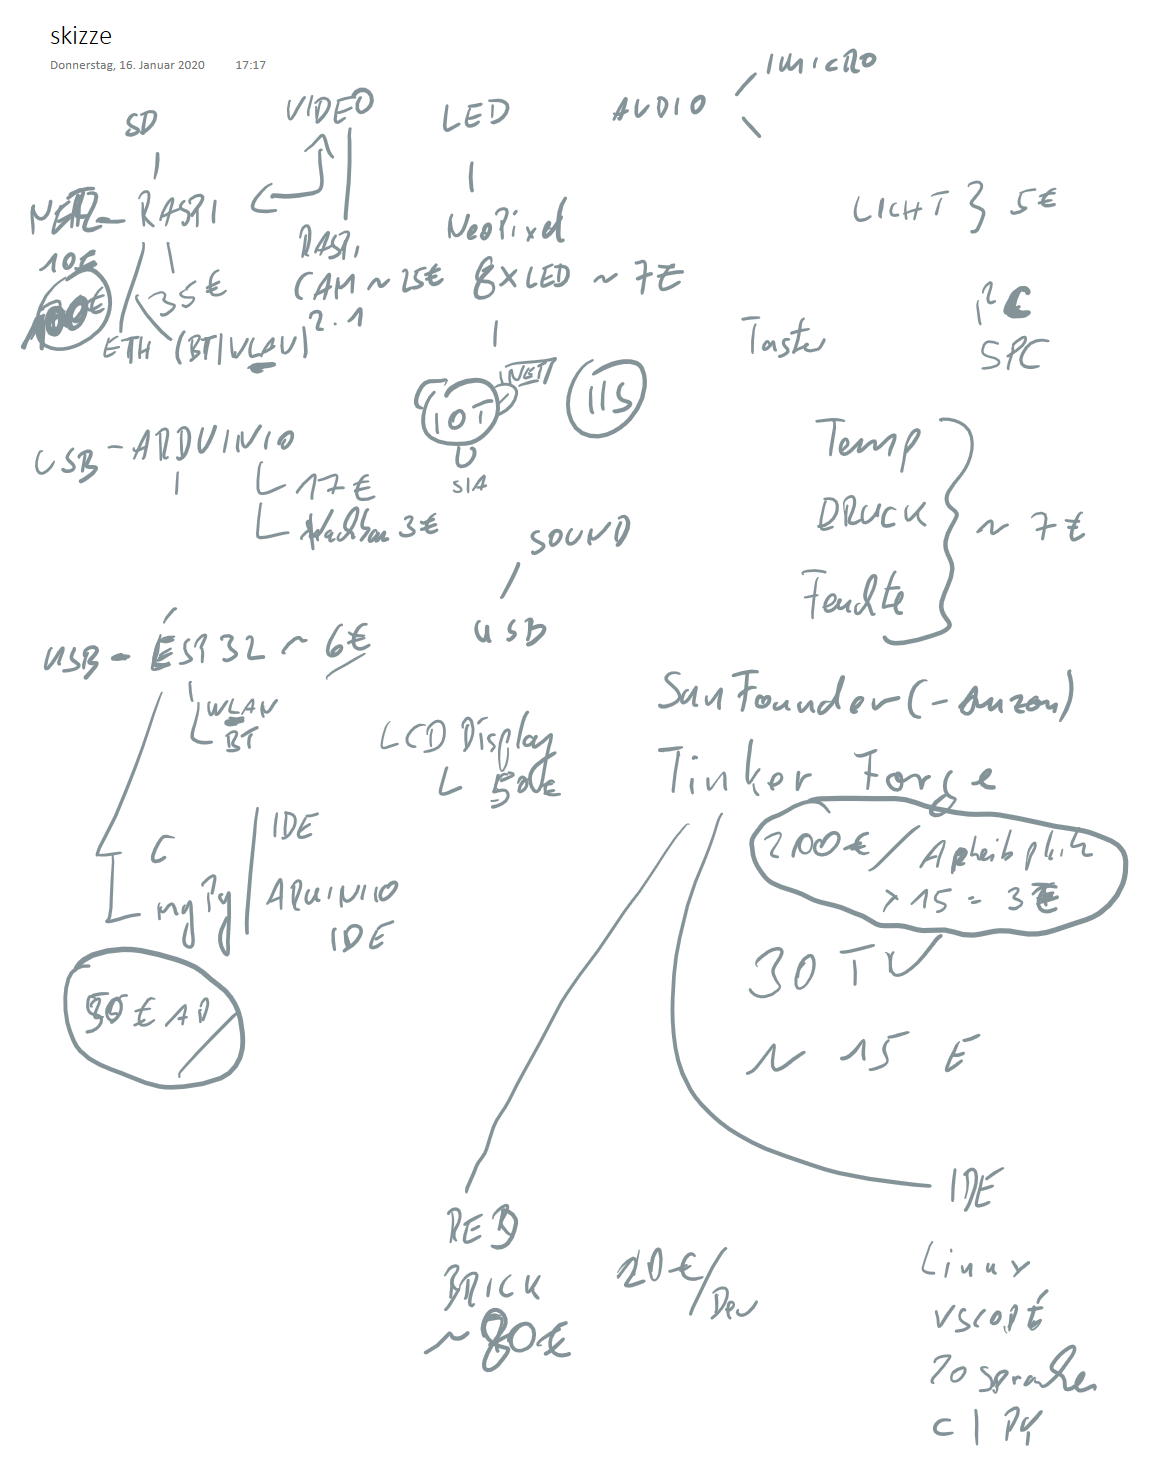 skizze
Donnerstag, 16. Januar 2020 17:17
IMICRO
SD
VIDEO
LED
AUDIO
NETZ - RASPI
10€
100€
35€
ETH (BT|WLAN)
RASPI
CAM ~ 25€
2.1
NeoPixel
8xLED ~ 7€
LICHT } 5€
I²C
SPC
Taster
IOT
NET
SIA
115
USB - ARDUINIO
17€
Nachbau 3€
SOUND
USB
Temp
DRUCK
Feuchte
~ 7€
USB - ESP32 ~ 6€
WLAN
BT
LCD Display
50€
SunFounder (- Amzon)
Tinker Forge
200€ /
x 15 =
30 TV
~ 15 €
C
myPy
IDE
ARUINIO
IDE
30€ AD
RED
BRICK
~ 80€
20€/Dev
IDE
Linux
VSCODE
20 Sprachen
C | PY